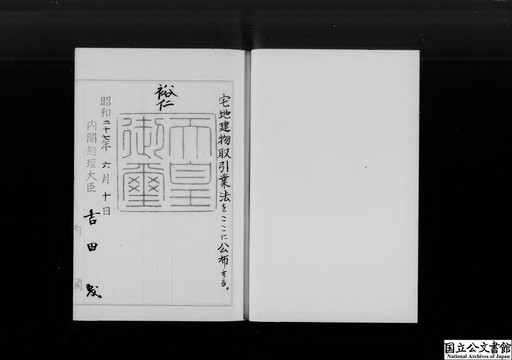 宅地建物取引業法をここに公布する。
裕仁
天皇御璽
昭和二十七年六月十日
内閣総理大臣
吉田茂
内閣
国立公文書館
National Archives of Japan